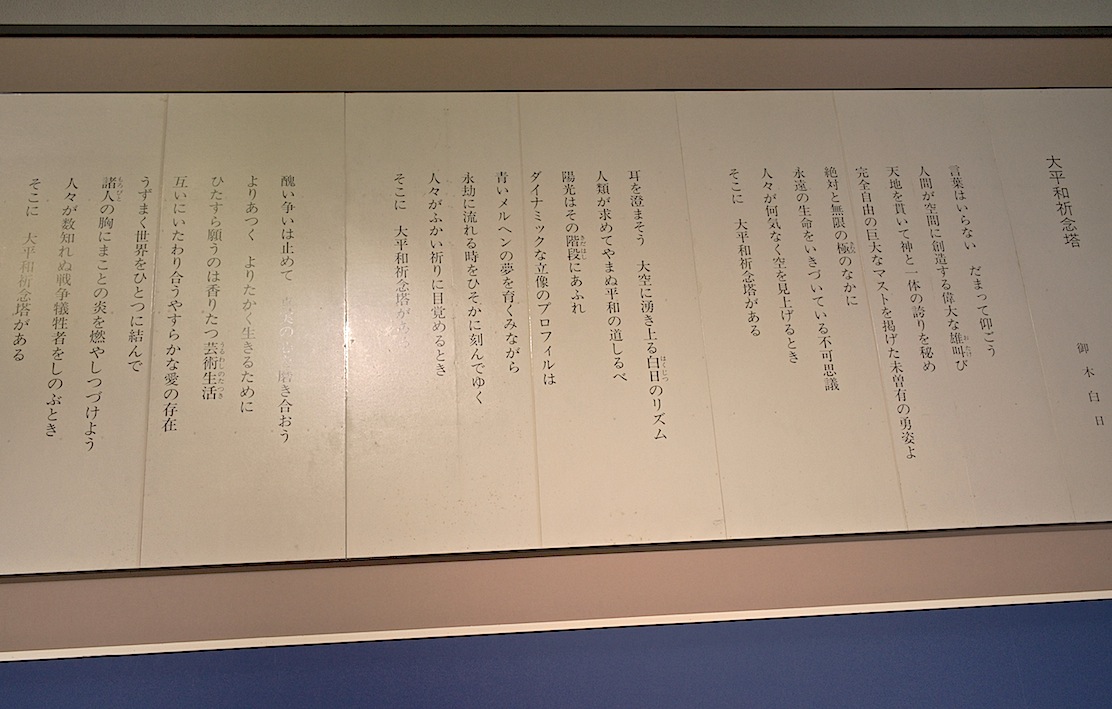 大平和祈念塔
御木白日
言葉はいらない　だまって仰ごう
人間が空間に創造する偉大な雄叫び
天地を貫いて神と一体の誇りを秘め
完全自由の巨大なマストを掲げた未曽有の勇姿よ
絶対と無限の極のなかに
永遠の生命をいきづいている不可思議
人々が何気なく空を見上げるとき
そこに　大平和祈念塔がある
耳を澄まそう　大空に湧き上る白日のリズム
人類が求めてやまぬ平和の道しるべ
陽光はその階段にあふれ
ダイナミックな立像のプロフィルは
青いメルヘンの夢を育くみながら
永劫に流れる時をひそかに刻んでゆく
人々がふかい祈りに目覚めるとき
そこに　大平和祈念塔がある
醜い争いは止めて　の　磨き合おう
よりあつく　よりたかく生きるために
ひたすら願うのは香りたつ芸術生活
互いにいたわり合うやすらかな愛の存在
うずまく世界をひとつに結んで
諸人の胸にまことの炎を燃やしつづけよう
人々が数知れぬ戦争犠牲者をしのぶとき
そこに　大平和祈念塔がある